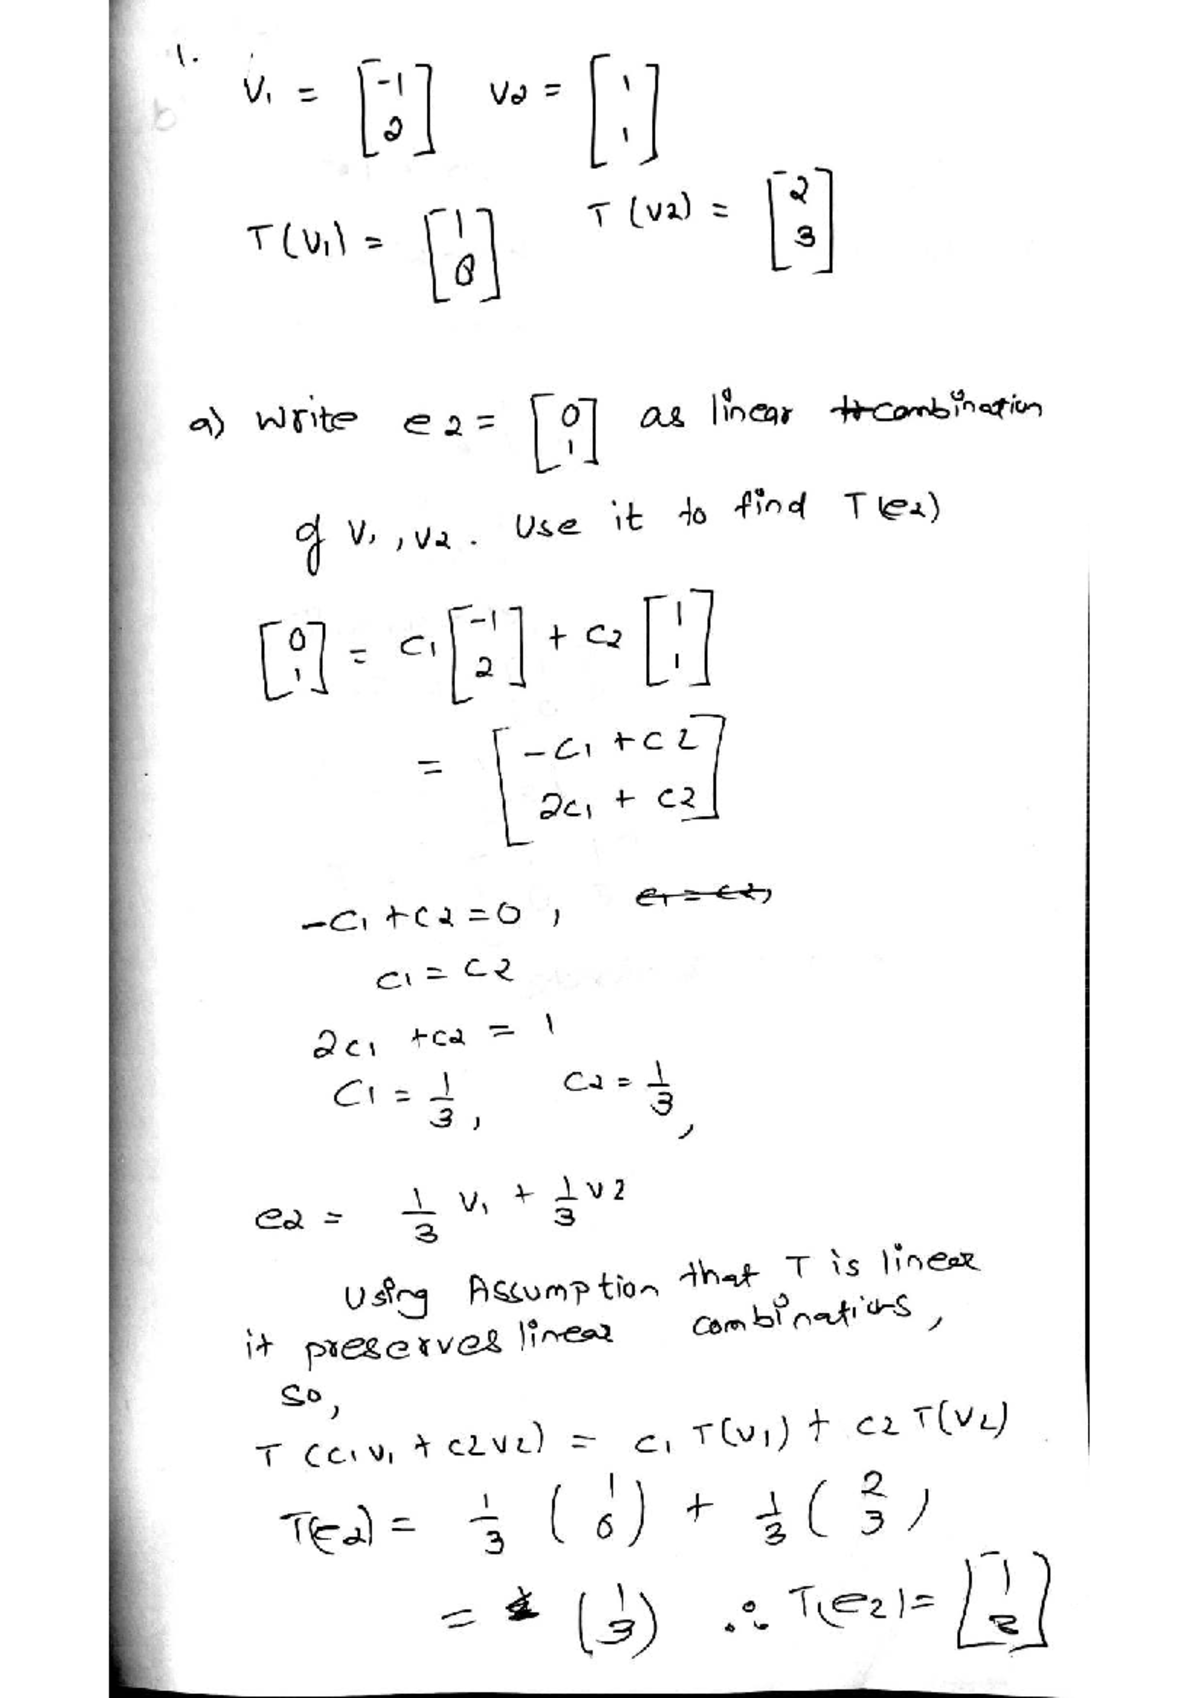 1.
V1 = [-1 2] V2 = [1 1]
T(V1) = [1 6] T(V2) = [2 3]
a) Write e2 = [0 1] as linear combination
of V1, V2. Use it to find T(e2)
[0 1] = C1 [-1 2] + C2 [1 1]
= [-C1 + C2 2C1 + C2]
-C1 + C2 = 0,
C1 = C2
2C1 + C2 = 1
C1 = 1/3, C2 = 1/3,
e2 = 1/3 V1 + 1/3 V2
Using Assumption that T is linear
it preserves linear combinations,
so,
T(C1V1 + C2V2) = C1 T(V1) + C2 T(V2)
T(e2) = 1/3 (1 6) + 1/3 (2 3)
= (1 3) ∴ T(e2) = [1 3]